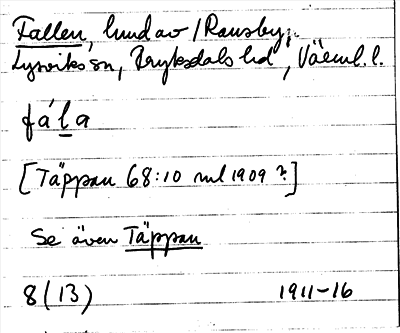 Fallen, hmd av / Ransby,
Lysviks sn, Fryksdals hd, Värml. l.
fála
[Täppan 68:10 ml 1909 ?]
Se även Täppan
8(13) 1911-16